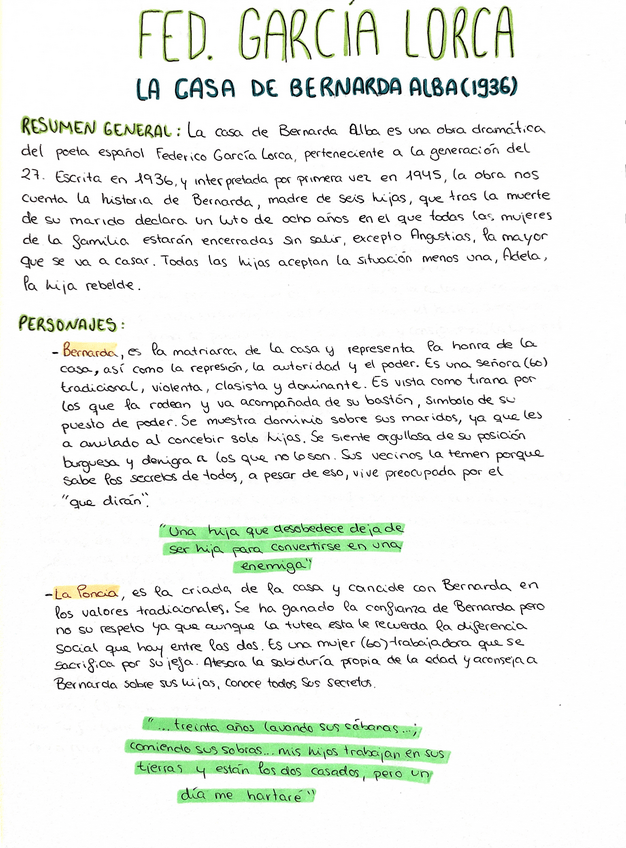 FED. GARCÍA LORCA
LA CASA DE BERNARDA ALBA (1936)
RESUMEN GENERAL: La casa de Bernarda Alba es una obra dramática
del poeta español Federico García Lorca, perteneciente a la generación del
27. Escrita en 1936, y interpretada por primera vez en 1945, la obra nos
cuenta la historia de Bernarda, madre de seis hijas, que tras la muerte
de su marido declara un luto de ocho años en el que todas las mujeres
de la familia estarán encerradas sin salir, excepto Angustias, la mayor
que se va a casar. Todas las hijas aceptan la situación menos una, Adela,
la hija rebelde.
PERSONAJES:
- Bernarda, es la matriarca de la casa y representa la honra de la
casa, así como la represión, la autoridad y el poder. Es una señora (60)
tradicional, violenta, clasista y dominante. Es vista como tirana por
los que la rodean y va acompañada de su bastón, símbolo de su
puesto de poder. Se muestra dominio sobre sus maridos, ya que les
a anulado al concebir solo hijas. Se siente orgullosa de su posición
burguesa y denigra a los que no lo son. Sus vecinos la temen porque
sabe los secretos de todos, a pesar de eso, vive preocupada por el
"que dirán".
"Una hija que desobedece deja de
ser hija para convertirse en una
enemiga"
- La Poncia, es la criada de la casa y concide con Bernarda en
los valores tradicionales. Se ha ganado la confianza de Bernarda pero
no su respeto ya que aunque la tutea esta le recuerda la diferencia
social que hay entre las dos. Es una mujer (60) trabajadora que se
sacrifica por su jefa. Atesora la sabiduría propia de la edad y aconseja a
Bernarda sobre sus hijas, conoce todos sus secretos.
"... treinta años lavando sus sábanas...;
comiendo sus sobras... mis hijos trabajan en sus
tierras y están los dos casados, pero un
día me hartaré"